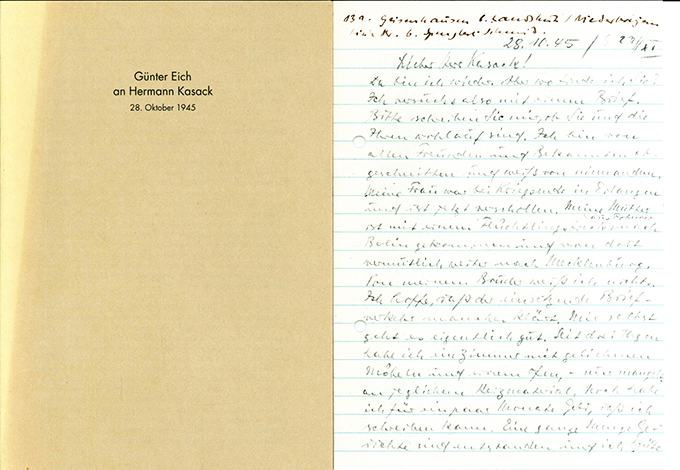 Günter Eich
an Hermann Kasack
28. Oktober 1945
13a. Geisenhausen b. Landshut / Niederbayern
bei Dr. b. Schmid.
28.10.45 /
Lieber Herr Kasack!
Da bin ich wieder. Aber wo sind
Ich versuchs also mit einem Brief.
Bitte schreiben Sie mir, ob Sie und die
Ihren wohlauf sind. Ich bin von
allen Freunden und Bekannten ab-
geschnitten und weiß von niemandem.
Meine Frau war bei Kriegsende in Erlangen
und ist jetzt verschollen. Meine Mutter
ist mit einem Flüchtlings nach
Berlin gekommen und von dort
vermutlich weiter nach Mecklenburg.
Von meinem Bruder weiß ich nichts.
Ich hoffe, daß der einsetzende Brief-
verkehr manches klärt. Mir selbst
geht es eigentlich gut. Seit drei Tagen
habe ich ein Zimmer mit geliehenen
Möbeln und einem Ofen, – nur mangelts
an jeglichem Heizmaterial. Noch habe
ich für ein paar Monate Geld, daß ich
schreiben kann. Eine ganze Menge Ge-
dichte sind entstanden und ich